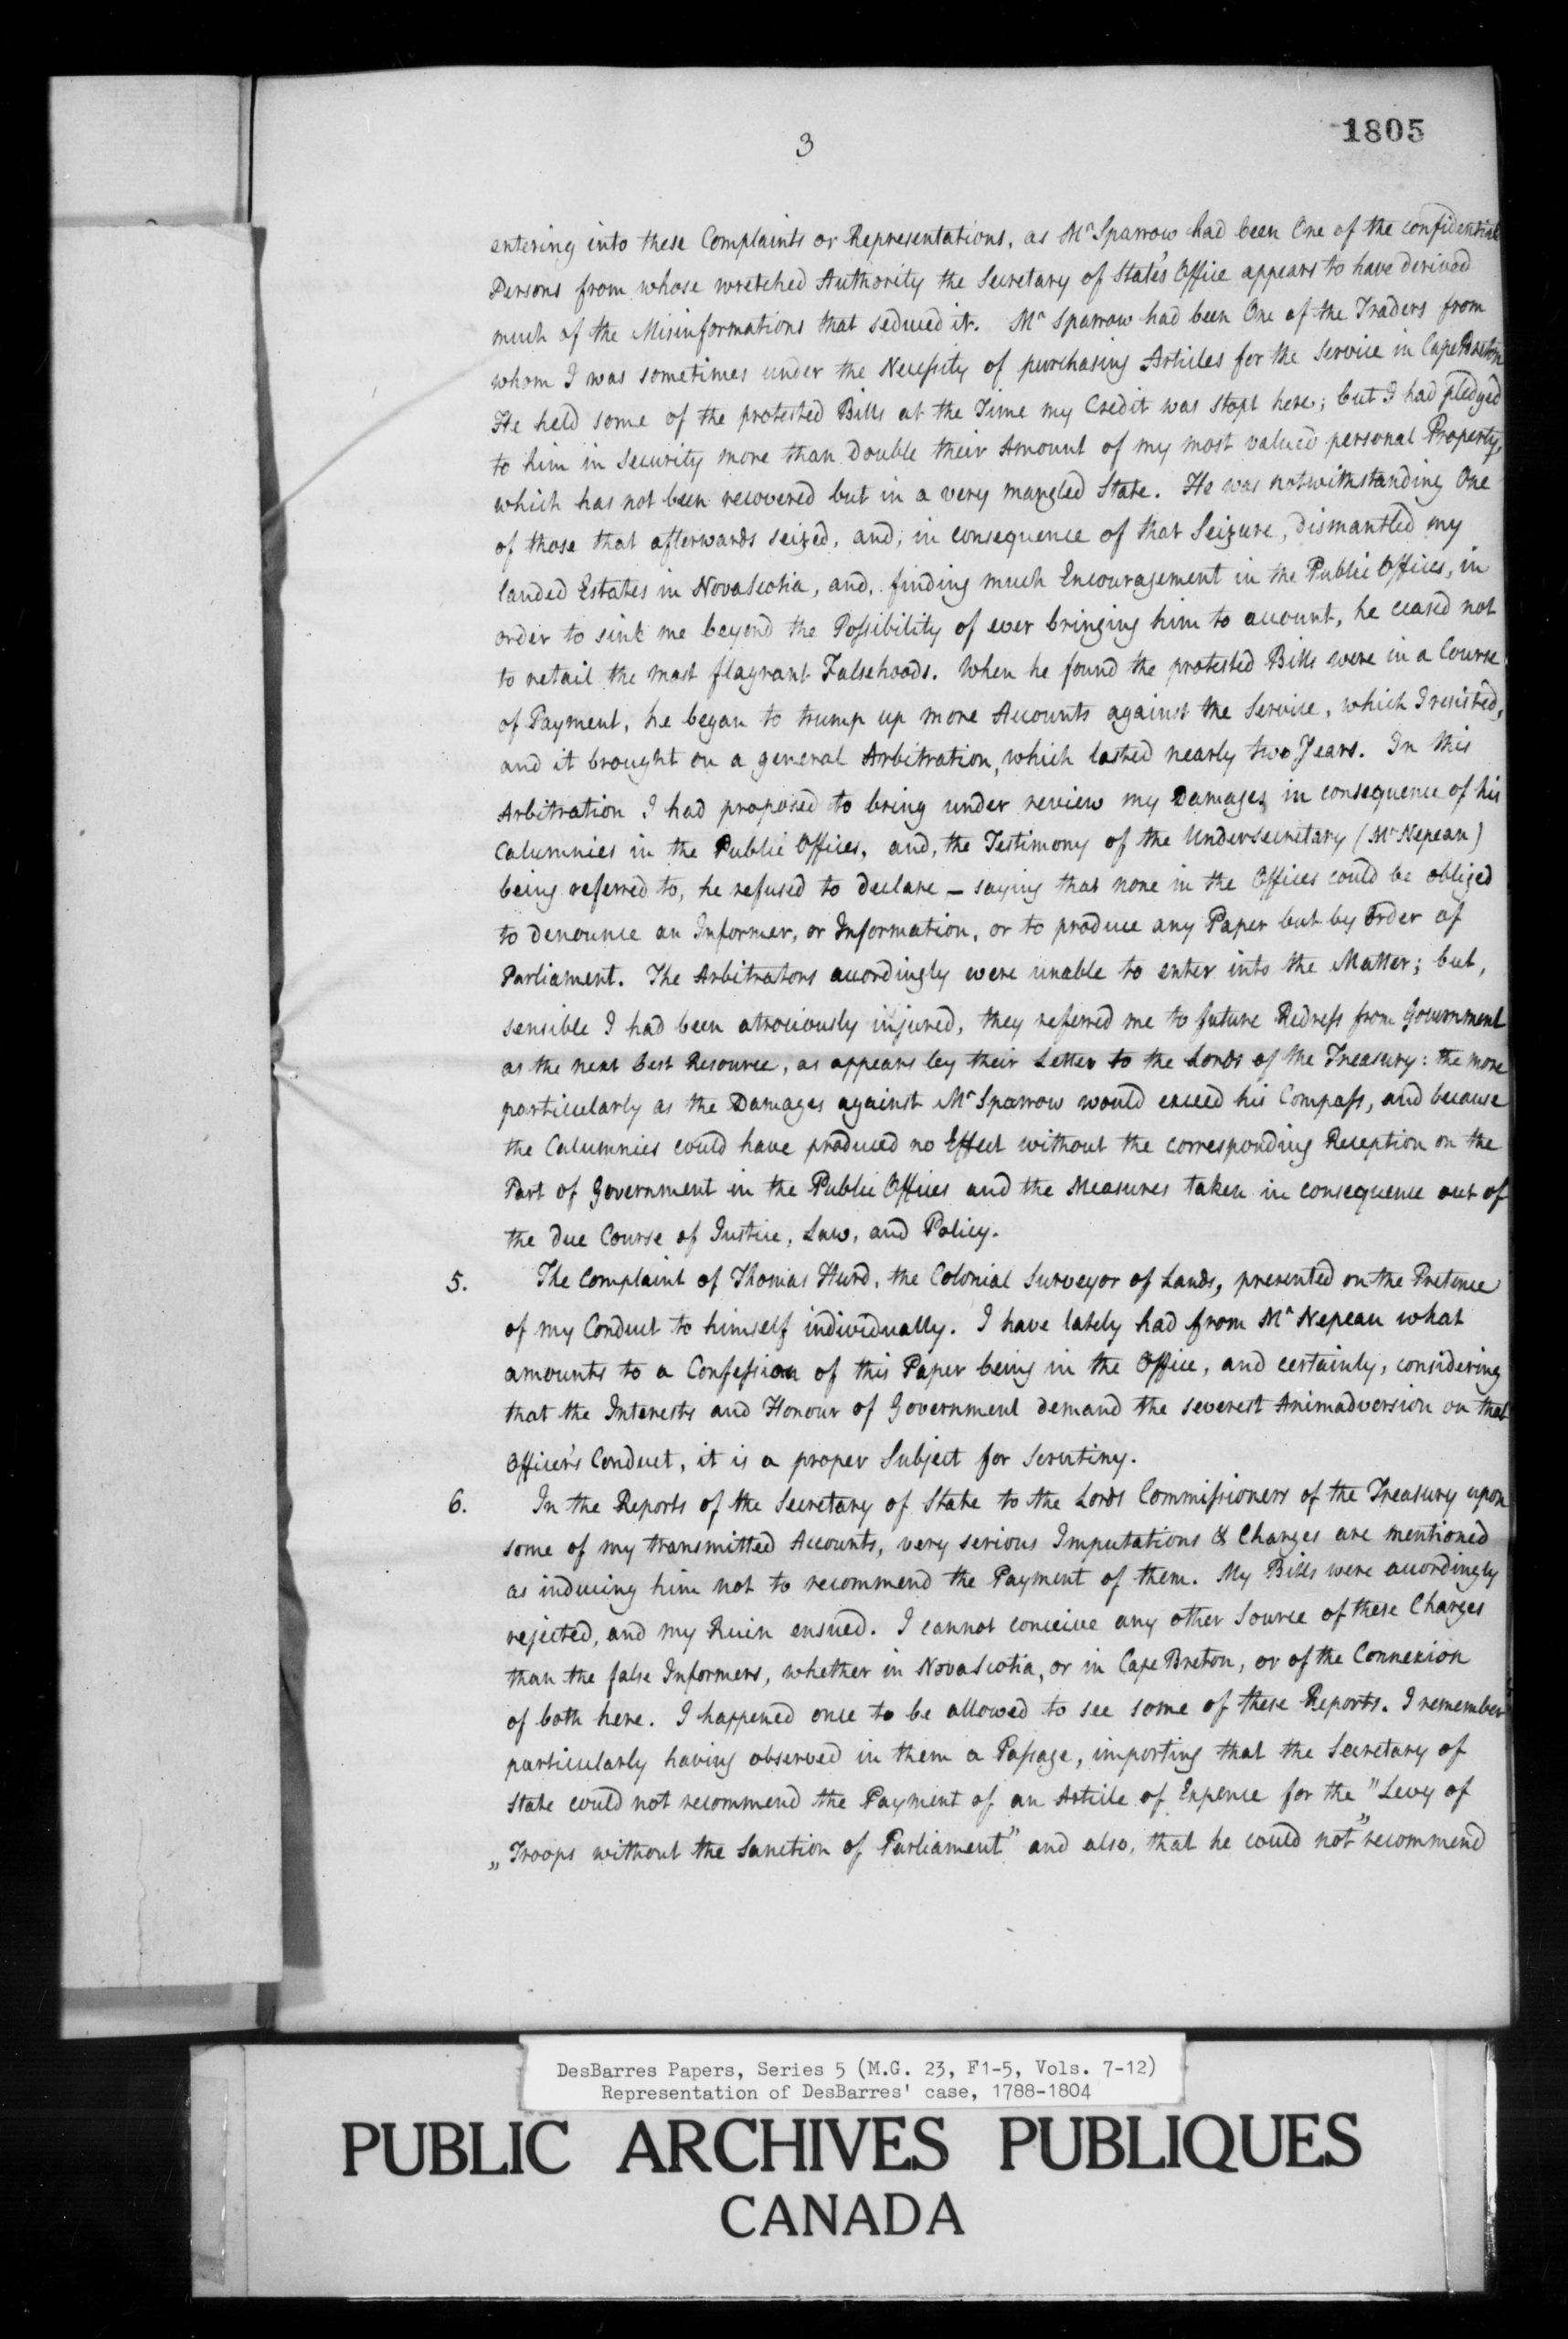 3
1805
entering into these Complaints or Representations, as Mr Sparrow had been One of the confidential
Persons from whose wretched Authority the Secretary of State's Office appears to have derived
much of the Misinformations that seduced it. Mr Sparrow had been One of the Traders from
whom I was sometimes under the Necessity of purchasing Articles for the Service in Cape Breton
He held some of the protested Bills at the Time my Credit was stopt here; but I had pledged
to him in Security more than double their Amount of my most valued personal Property,
which has not been recovered but in a very mangled State. He was notwithstanding One
of those that afterwards seized, and, in consequence of that Seizure, dismantled my
landed Estates in NovaScotia, and, finding much Encouragement in the Public Offices, in
order to sink me beyond the Possibility of ever bringing him to account, he ceased not
to retail the most flagrant Falsehoods. When he found the protested Bills were in a Course
of Payment, he began to trump up more Accounts against the Service, which I resisted,
and it brought on a general Arbitration, which lasted nearly two Years. In this
Arbitration I had proposed to bring under review my Damages in consequence of his
Calumnies in the Public Offices, and, the Testimony of the Undersecretary (Mr Nepean)
being referred to, he refused to declare — saying that none in the Offices could be obliged
to denounce an Informer, or Information, or to produce any Paper but by Order of
Parliament. The Arbitrators accordingly were unable to enter into the Matter; but,
sensible I had been atrociously injured, they referred me to future Redress from Government
as the next best Resource, as appears by their Letter to the Lords of the Treasury: the more
particularly as the Damages against Mr Sparrow would exceed his Compass, and because
the Calumnies could have produced no Effect without the corresponding Reception on the
Part of Government in the Public Offices and the Measures taken in consequence out of
the due Course of Justice, Law, and Policy.
5. The Complaint of Thomas Hurd, the Colonial Surveyor of Lands, presented on the Pretence
of my Conduct to himself individually. I have lately had from Mr Nepean what
amounts to a Confession of this Paper being in the Office, and certainly, considering
that the Interests and Honour of Government demand the severest Animadversion on that
Officer's Conduct, it is a proper Subject for Scrutiny.
6. In the Reports of the Secretary of State to the Lords Commissioners of the Treasury upon
some of my transmitted Accounts, very serious Imputations & Charges are mentioned
as inducing him not to recommend the Payment of them. My Bills were accordingly
rejected, and my Ruin ensued. I cannot conceive any other Source of these Charges
than the false Informers, whether in NovaScotia, or in Cape Breton, or of the Connexion
of both here. I happened once to be allowed to see some of these Reports. I remember
particularly having observed in them a Passage, importing that the Secretary of
State could not recommend the Payment of an Article of Expence for the "Levy of
„Troops without the Sanction of Parliament" and also, that he could not "recommend
DesBarres Papers, Series 5 (M.G. 23, F1-5, Vols. 7-12)
Representation of DesBarres' case, 1788-1804
PUBLIC ARCHIVES PUBLIQUES
CANADA